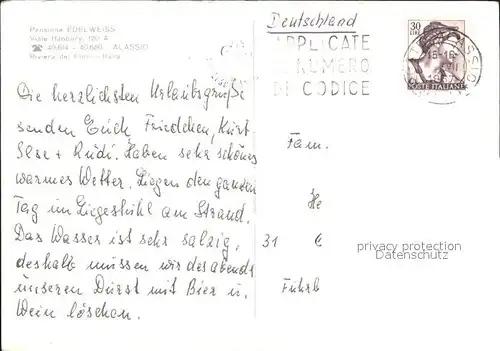 Pensione EDELWEISS
Viale Hanbury, 120 A
☎ 40.614 - 40.680 ALASSIO
Riviera dei Fiori - Italia
Deutschland
APPLICATE
NUMERO
DI CODICE
30
LIRE
POSTE ITALIANE
Die herzlichsten Urlaubsgrüße
senden Euch, Friedchen, Kurt
Ilse + Rudi. Haben sehr schönes
warmes Wetter. Liegen den ganzen
Tag im Liegestühl am Strand.
Das Wasser ist sehr salzig,
deshalb müssen wir des abends
unseren Durst mit Bier u.
Wein löschen.
Fam.
He
31 C
Führb
privacy protection
Datenschutz